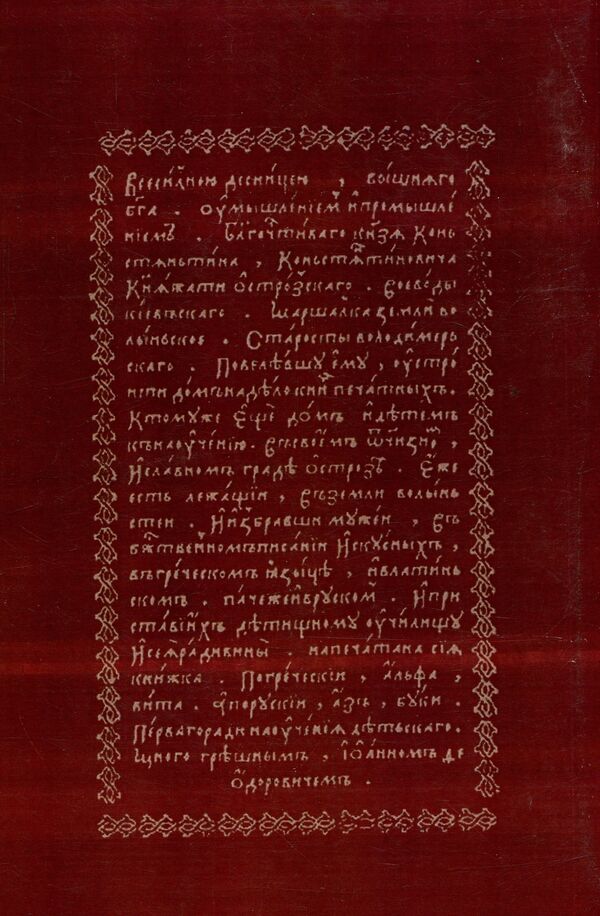 Всеси́лною десни́цею , вы́шняго
бг҃а . оу҆мышле́нїемъ и҆промышле́
нїемъ . бл҃гочти́ваго кн҃зѧКонь
стѧньти́на , Коньстѧнти́новича
Кнѧ́жати О҆стро́зскаго . воево́ды
кі́евьскаго . Маршалка земли́ во
лы́ньское . Ста́росты володи́мерь
скаго . Повеле́вшу є҆му̀ , оу҆стро́
ити до́мъ на дѣ́ло кни́гъ печа́тныхъ .
Ктому́же є҆щѐ до́мъ и҆дѣ́темъ
къ наоуче́нїю . въ свое́мъ ѡ҆тчи́зномъ ,
и҆сла́вномъ гра́дѣ О҆стро́зѣ . е҆́же
есть лежа́щїи , въ земли́ волы́нь
стеи . И҆и҆збра́вши муже́й , въ
бж҃е́ственномъ писа́нїи и҆ску́сныхъ ,
въ гре́ческомъ ꙗ҆зы́цѣ , и҆влати́нь
скомъ . па́че же и҆вру́скомъ . И҆при
ста́ви и҆́хъ дѣ́тищному оу҆чи́лищу
И҆сеѧ̀ ра́ди вины̀ . напеча́тана сїѧ̀
кни́жка . Погре́ческїи , а҆́льфа ,
ви́та . А҆пору́скїи , а҆́зъ , бу́ки .
Пе́рваго ра́ди наоуче́нїѧ дѣ́тьскаго .
мно́гогрѣ́шнымъ , І҆ѡа́нномъ Ѳе
ѡ҆́доровичемъ .